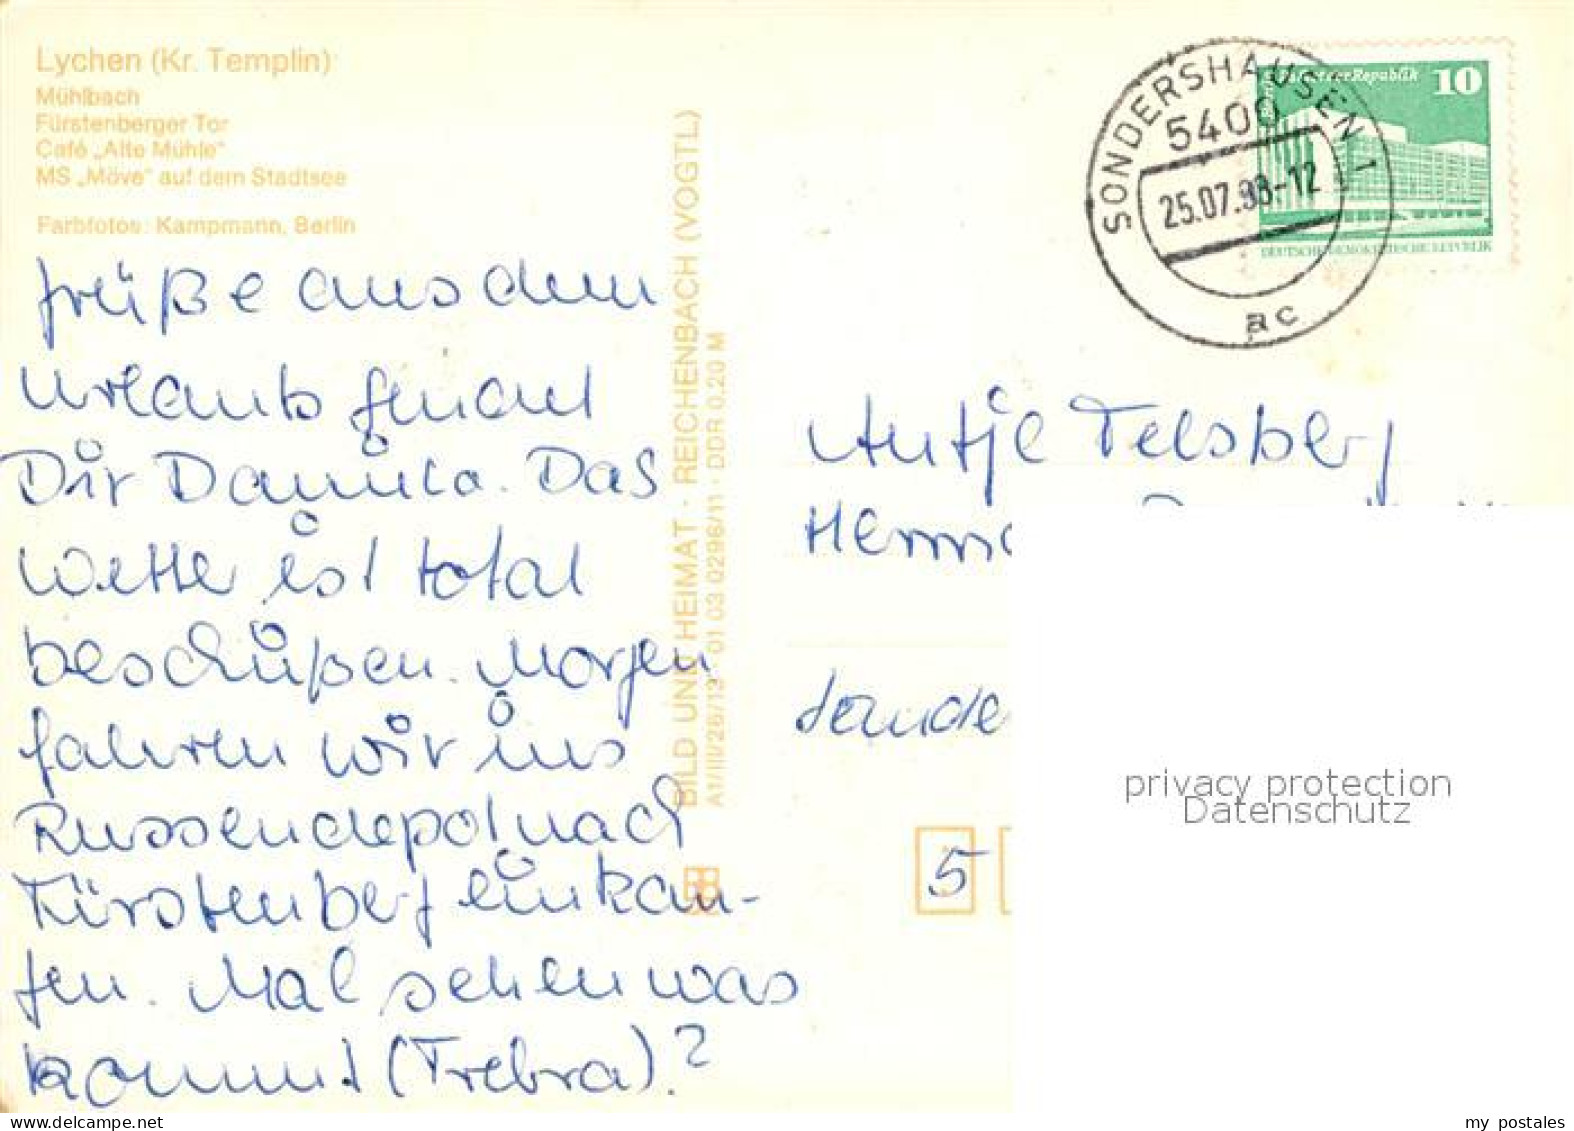 Lychen (Kr. Templin):
Mühlbach
Fürstenberger Tor
Café „Alte Mühle"
MS „Möve" auf dem Stadtsee
Farbfotos: Kampmann, Berlin
Grüße aus dem
Urlaub sendet
Dir Danilo. Das
Wetter ist total
beschißen. Morgen
fahren wir ins
Russendepot nach
Fürstenberg einkau-
fen. Mal sehen was
kommt (Trebra)?
BILD UND HEIMAT · REICHENBACH (VOGTL)
A1/III/26/13 · 01 03 0296/11 · DDR 0,20 M
SONDERSHAUSEN 1
5400
25.07.90-12
ac
10
DEUTSCHE DEMOKRATISCHE REPUBLIK
Antje Felsberg
Sonde
5
privacy protection
Datenschutz
my postales
www.delcampe.net